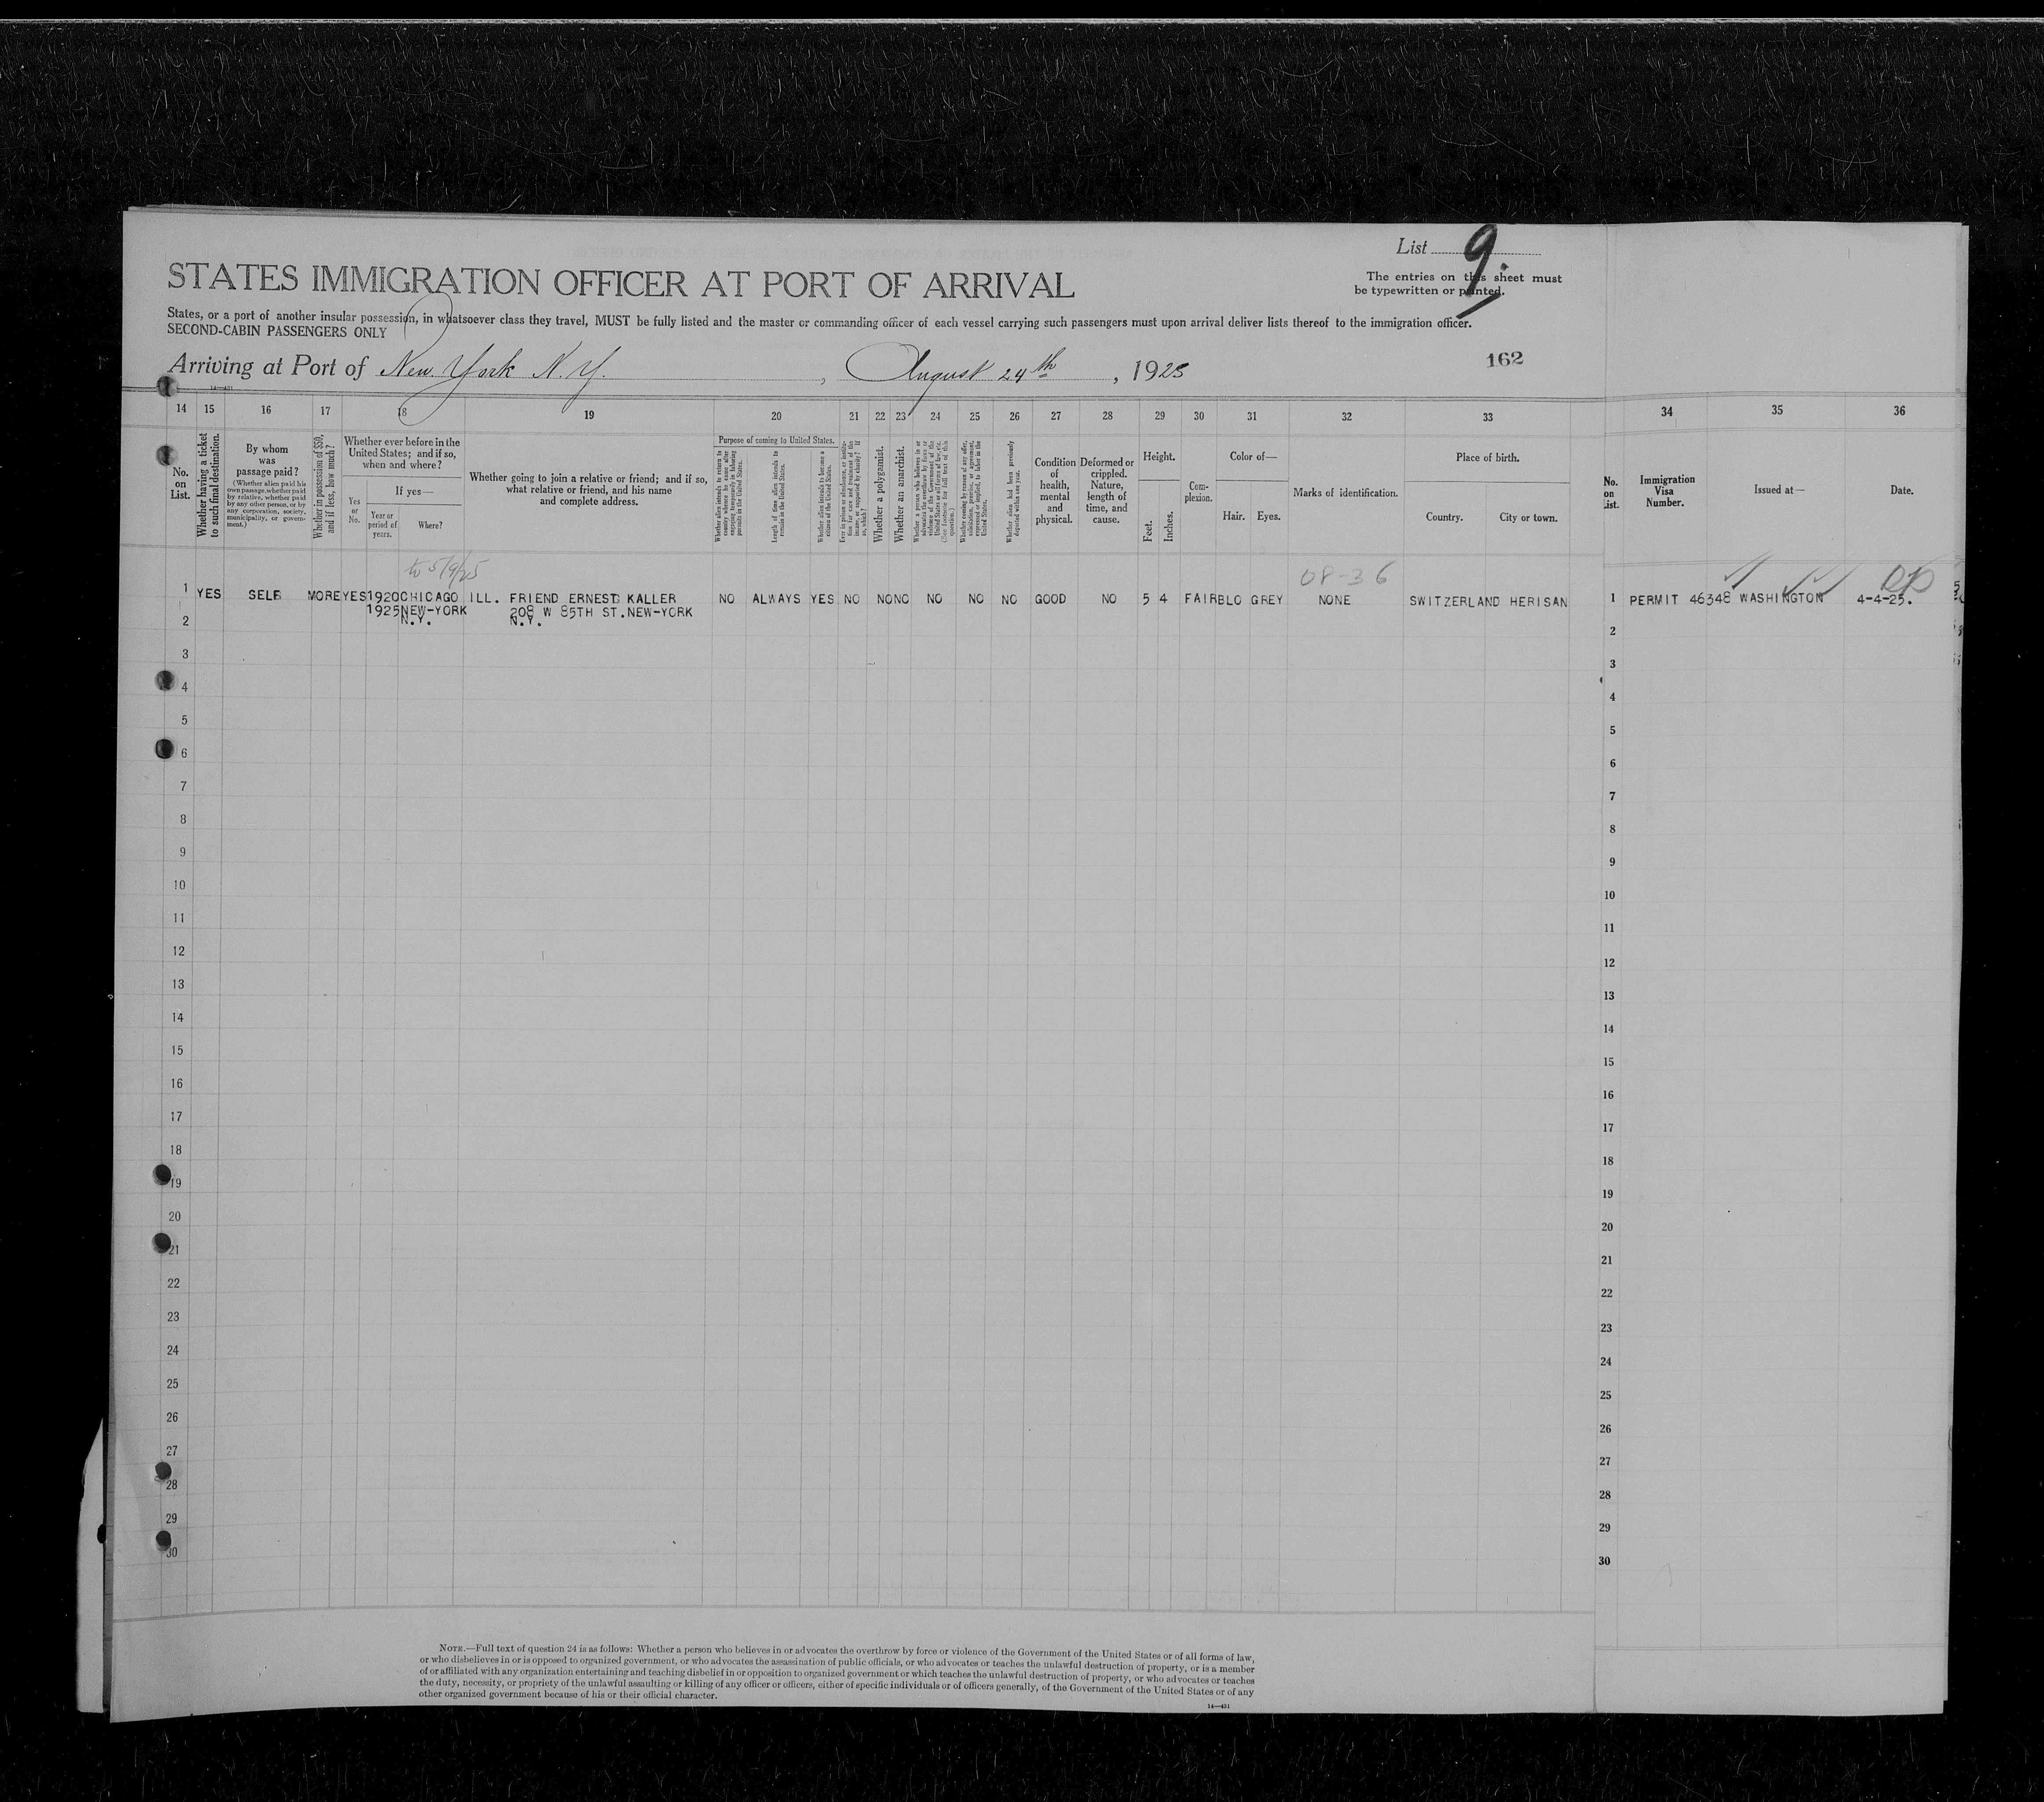 List 9.
STATES IMMIGRATION OFFICER AT PORT OF ARRIVAL
The entries on this sheet must
be typewritten or printed.
States, or a port of another insular possession, in whatsoever class they travel, MUST be fully listed and the master or commanding officer of each vessel carrying such passengers must upon arrival deliver lists thereof to the immigration officer.
SECOND-CABIN PASSENGERS ONLY
Arriving at Port of New York N.Y. , August 24th , 1925
162
14—431
14 15 16 17 18 19 20 21 22 23 24 25 26 27 28 29 30 31 32 33 34 35 36
No. on List.
Whether having a ticket to such final destination.
By whom was passage paid?
(Whether alien paid his own passage, whether paid by relative, whether paid by any other person, or by any corporation, society, municipality, or government.)
Whether in possession of $50, and if less, how much?
Whether ever before in the United States; and if so, when and where?
Yes or No.
If yes—
Year or period of years.
Where?
Whether going to join a relative or friend; and if so, what relative or friend, and his name and complete address.
Purpose of coming to United States.
Whether alien intends to return to country whence he came after engaging temporarily in laboring pursuits in the United States.
Length of time alien intends to remain in the United States.
Whether alien intends to become a citizen of the United States.
Ever in prison or almshouse, or institution for care and treatment of the insane, or supported by charity? If so, which?
Whether a polygamist.
Whether an anarchist.
Whether a person who believes in or advocates the overthrow by force or violence of the Government of the United States or all forms of law, etc. (See footnote for full text of this question.)
Whether coming by reason of any offer, solicitation, promise, or agreement, expressed or implied, to labor in the United States.
Whether alien had been previously deported within one year.
Condition of health, mental and physical.
Deformed or crippled. Nature, length of time, and cause.
Height.
Feet.
Inches.
Complexion.
Color of—
Hair.
Eyes.
Marks of identification.
Place of birth.
Country.
City or town.
No. on List.
Immigration Visa Number.
Issued at—
Date.
to 5/9/25
08-36
1 YES SELF MORE YES 1920 CHICAGO ILL. FRIEND ERNEST KALLER NO ALWAYS YES NO NO NO NO NO NO GOOD NO 5 4 FAIR BLO GREY NONE SWITZERLAND HERISAN 1 PERMIT 46348 WASHINGTON 4-4-25.
1925 NEW-YORK 208 W 85TH ST. NEW-YORK
N.Y. N.Y.
2 2
3 3
4 4
5 5
6 6
7 7
8 8
9 9
10 10
11 11
12 12
13 13
14 14
15 15
16 16
17 17
18 18
19 19
20 20
21 21
22 22
23 23
24 24
25 25
26 26
27 27
28 28
29 29
30 30
NOTE.—Full text of question 24 is as follows: Whether a person who believes in or advocates the overthrow by force or violence of the Government of the United States or of all forms of law,
or who disbelieves in or is opposed to organized government, or who advocates the assassination of public officials, or who advocates or teaches the unlawful destruction of property, or is a member
of or affiliated with any organization entertaining and teaching disbelief in or opposition to organized government or which teaches the unlawful destruction of property, or who advocates or teaches
the duty, necessity, or propriety of the unlawful assaulting or killing of any officer or officers, either of specific individuals or of officers generally, of the Government of the United States or of any
other organized government because of his or their official character.
14—431